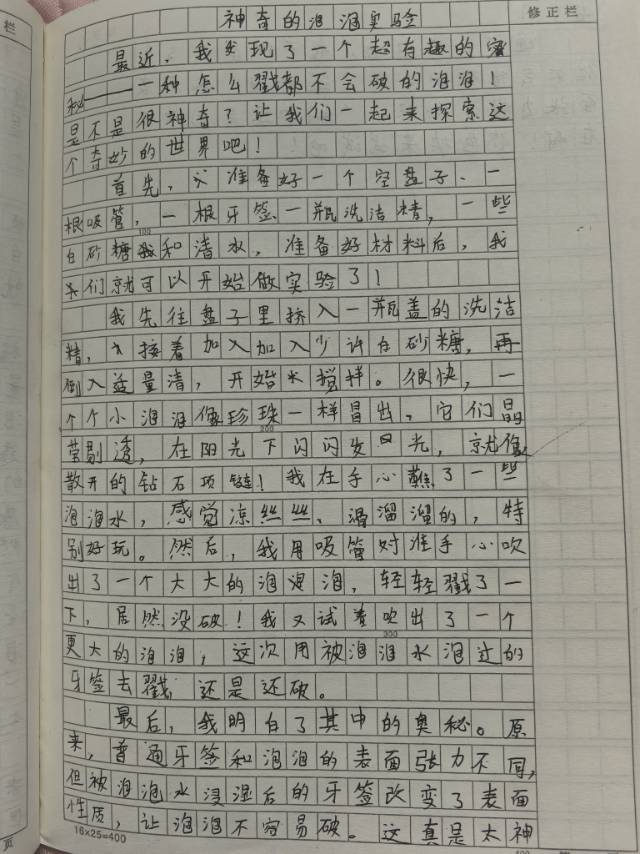 神奇的泡泡实验
修正栏
栏
最近，我发现了一个超有趣的秘
秘——一种怎么戳都不会破的泡泡！
是不是很神奇？让我们一起来探索这
个奇妙的世界吧！
首先，准备好一个空盘子、一
根吸管，一根牙签、一瓶洗洁精，一些
白砂糖和清水，准备好材料后，我
们就可以开始做实验了！
100
我先往盘子里挤入一瓶盖的洗洁
精，接着加入加入少许白砂糖，再
倒入适量清，开始水搅拌。很快，一
个个小泡泡像珍珠一样冒出，它们晶
200
莹剔透，在阳光下闪闪发光，就像
散开的钻石项链！我在手心蘸了一些
泡泡水，感觉凉丝丝、滑溜溜的，特
别好玩。然后，我用吸管对准手心吹
出了一个大大的泡泡，轻轻戳了一
下，居然没破！我又试着吹出了一个
300
更大的泡泡，这次用被泡泡水泡过的
牙签去戳，还是还破。
最后，我明白了其中的奥秘。原
来，普通牙签和泡泡的表面张力不同，
但被泡泡水浸湿后的牙签改变了表面
性质，让泡泡不容易破。这真是太神
16×25=400
400
页